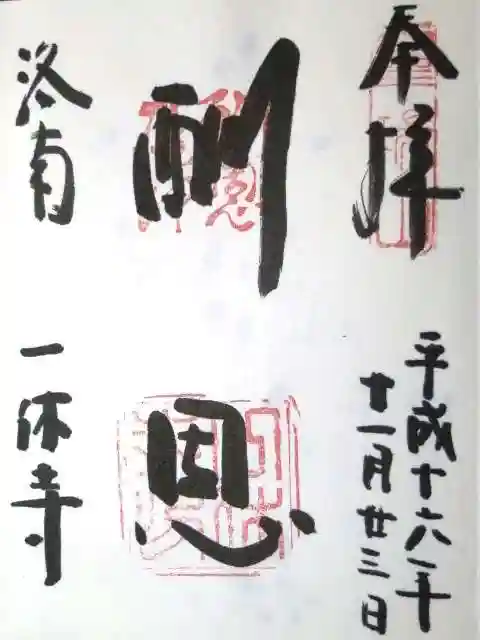 奉拝
平成十六年
十一月廿三日
酬恩
洛南
一休寺